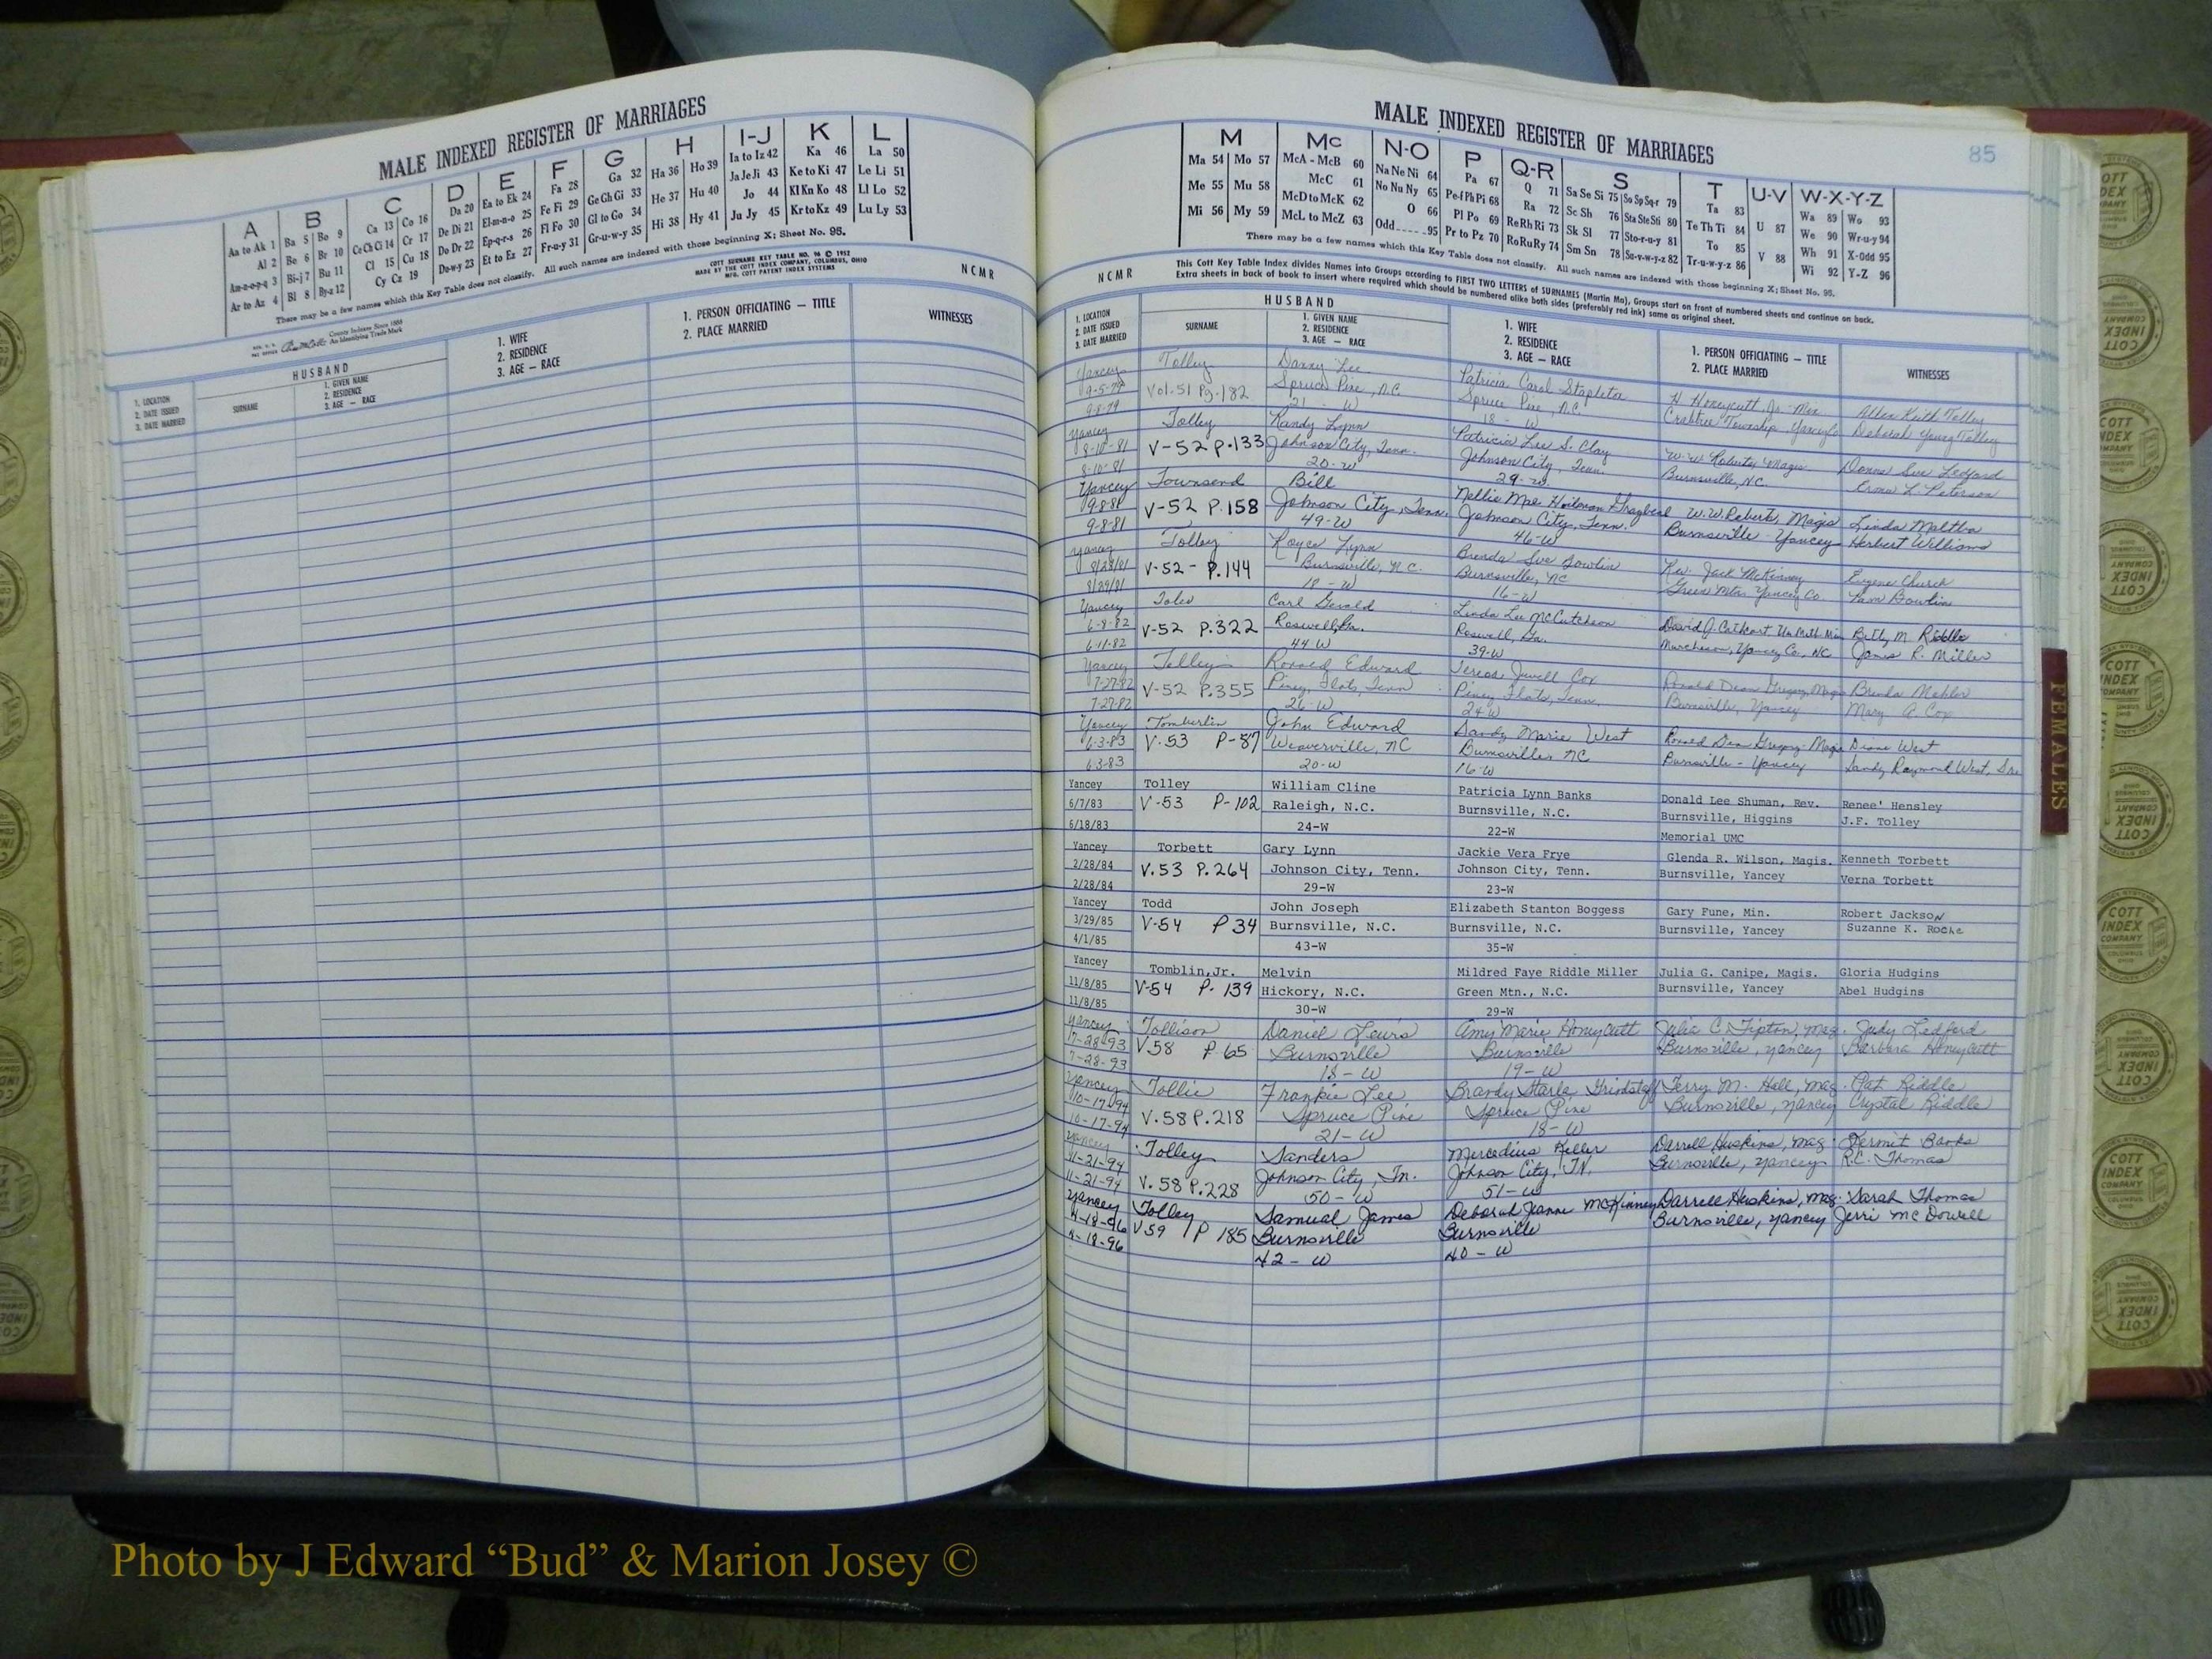 MALE INDEXED REGISTER OF MARRIAGES
A B C D E F G H I-J K L
Aa to Ak 1 Ba 5 Bo 9 Ca 13 Co 16 Da 20 Ea to Ek 24 Fa 28 Ga 32 Ha 36 Ho 39 Ia to Iz 42 Ka 46 La 50
Al 2 Be 6 Br 10 Ce Ch Ci 14 Cr 17 De Di 21 El-m-n-o 25 Fe Fi 29 Ge Gh Gi 33 He 37 Hu 40 Ja Je Ji 43 Ke to Ki 47 Le Li 51
Am-n-o-p-q 3 Bi-j 7 Bu 11 Cl 15 Cu 18 Do Dr 22 Ep-q-r-s 26 Fl Fo 30 Gl to Go 34 Hi 38 Hy 41 Jo 44 Kl Kn Ko 48 Ll Lo 52
Ar to Az 4 Bl 8 By-z 12 Cy Cz 19 Du-w-y 23 Et to Ez 27 Fr-u-y 31 Gr-u-w-y 35 Ju Jy 45 Kr to Kz 49 Lu Ly 53
There may be a few names which this Key Table does not classify. All such names are indexed with those beginning X; Sheet No. 95.
County Indexes Since 1888
An Identifying Trade Mark
COTT SURNAME KEY TABLE NO. 96 © 1952
MADE BY THE COTT INDEX COMPANY, COLUMBUS, OHIO
MFG. COTT PATENT INDEX SYSTEMS
NCMR
HUSBAND
1. LOCATION
2. DATE ISSUED
3. DATE MARRIED
SURNAME
1. GIVEN NAME
2. RESIDENCE
3. AGE — RACE
1. WIFE
2. RESIDENCE
3. AGE — RACE
1. PERSON OFFICIATING — TITLE
2. PLACE MARRIED
WITNESSES
MALE INDEXED REGISTER OF MARRIAGES
85
M Mc N-O P Q-R S T U-V W-X-Y-Z
Ma 54 Mo 57 McA - McB 60 Na Ne Ni 64 Pa 67 Q 71 Sa Se Si 75 So Sp Sq-r 79 Ta 83 U 87 Wa 89 Wo 93
Me 55 Mu 58 McC 61 No Nu Ny 65 Pe-f Ph Pi 68 Ra 72 Sc Sh 76 Sta Ste Sti 80 Te Th Ti 84 V 88 We 90 Wr-u-y 94
Mi 56 My 59 McD to McK 62 O 66 Pl Po 69 Re Rh Ri 73 Sk Sl 77 Sto-r-u-y 81 To 85 Wh 91 X-Odd 95
McL to McZ 63 Odd 95 Pr to Pz 70 Ro Ru Ry 74 Sm Sn 78 Su-v-w-y-z 82 Tr-u-w-y-z 86 Wi 92 Y-Z 96
There may be a few names which this Key Table does not classify. All such names are indexed with those beginning X; Sheet No. 95.
NCMR
This Cott Key Table Index divides Names into Groups according to FIRST TWO LETTERS of SURNAMES (Martin Ma), Groups start on front of numbered sheets and continue on back.
Extra sheets in back of book to insert where required which should be numbered alike both sides (preferably red ink) same as original sheet.
HUSBAND
1. LOCATION
2. DATE ISSUED
3. DATE MARRIED
SURNAME
1. GIVEN NAME
2. RESIDENCE
3. AGE — RACE
1. WIFE
2. RESIDENCE
3. AGE — RACE
1. PERSON OFFICIATING — TITLE
2. PLACE MARRIED
WITNESSES
Yancey Tolley Danny Lee Patricia Carol Stapleton H. Honeycutt, Jr. Min. Allen Keith Tolley
9-5-79 Vol. 51 Pg. 182 Spruce Pine, N.C. Spruce Pine, N.C. Crabtree Township Deborah Young Tolley
9-8-79 21 W 18 - W
Yancey Tolley Randy Lynn Patricia Lee S. Clay W. W. Roberts, Magis. Donna Sue Ledford
8-10-81 V-52 P.133 Johnson City, Tenn. Johnson City, Tenn. Burnsville, N.C. Erma L. Peterson
8-10-81 20-W 29-W
Yancey Townsend Bill Nellie Mae W.W. Roberts, Magis Linda Maltba
9-8-81 V-52 P.158 Johnson City, Tenn. Johnson City, Tenn. Burnsville - Yancey Herbert Williams
9-8-81 49-W 46-W
Yancey Tolley Royce Lynn Brenda Sue Bowlin Rev. Jack McKinney Eugene Church
8/28/81 V-52 - P.144 Burnsville, N.C. Burnsville, NC Green Mtn. Yancey Co. Pam Bowlin
8/29/81 18 - W 16-W
Yancey Toles Carl Gerald Linda Lee McCutcheon David J. Cathcart Un. Meth. Min Betty M. Riddle
6-8-82 V-52 P.322 Roswell, Ga. Roswell, Ga. Murchison, Yancey Co., NC James R. Miller
6-11-82 44 W 39-W
Yancey Tolley Ronald Edward Teresa Jewell Cox Ronald Dean Gregory, Magis Brenda Mahler
7-27-82 V-52 P.355 Piney Flats, Tenn Piney Flats, Tenn. Burnsville, Yancey Mary A. Cox
7-27-82 26-W 24 W
Yancey Tomberlin John Edward Sandy Marie West Ronald Dean Gregory Magis Diane West
6-3-83 V.53 P-87 Weaverville, NC Burnsville NC Burnsville - Yancey Sandy Raymond West, Sr
6-3-83 20-W 16-W
Yancey Tolley William Cline Patricia Lynn Banks Donald Lee Shuman, Rev. Renee' Hensley
6/7/83 V-53 P-102 Raleigh, N.C. Burnsville, N.C. Burnsville, Higgins J.F. Tolley
6/18/83 24-W 22-W Memorial UMC
Yancey Torbett Gary Lynn Jackie Vera Frye Glenda R. Wilson, Magis. Kenneth Torbett
2/28/84 V.53 P.264 Johnson City, Tenn. Johnson City, Tenn. Burnsville, Yancey Verna Torbett
2/28/84 29-W 23-W
Yancey Todd John Joseph Elizabeth Stanton Boggess Gary Fune, Min. Robert Jackson
3/29/85 V-54 P 34 Burnsville, N.C. Burnsville, N.C. Burnsville, Yancey Suzanne K. Roche
4/1/85 43-W 35-W
Yancey Tomblin, Jr. Melvin Mildred Faye Riddle Miller Julia G. Canipe, Magis. Gloria Hudgins
11/8/85 V-54 P- 139 Hickory, N.C. Green Mtn., N.C. Burnsville, Yancey Abel Hudgins
11/8/85 30-W 29-W
Yancey Tollison Daniel Lewis Amy Marie Honeycutt Julia C. Tipton, mag. Judy Ledford
7-28-93 V.58 P 65 Burnsville Burnsville Burnsville, Yancey Barbara Honeycutt
7-28-93 18 - W 19 - W
Yancey Tollie Frankie Lee Brandy Starla Grindstaff Terry M. Hall, mag. Pat Riddle
10-17-94 V.58 P.218 Spruce Pine Spruce Pine Burnsville, Yancey Crystal Riddle
10-17-94 21 - W 18 - W
Yancey Tolley Sanders Mercedius Keller Darrell Huskins, mag Dermit Banks
11-21-94 V. 58 P.228 Johnson City, Tn. Johnson City, TN. Burnsville, Yancey R.C. Thomas
11-21-94 50 - W 51 - W
Yancey Tolley Samual James Deborah Jeanne McKinney Darrell Huskins, mag. Sarah Thomas
4-18-96 V59 P 185 Burnsville Burnsville Burnsville, Yancey Jerri McDowell
4-18-96 42 - W 40 - W
FEMALES
COTT INDEX COMPANY COLUMBUS OHIO
Photo by J Edward “Bud” & Marion Josey ©